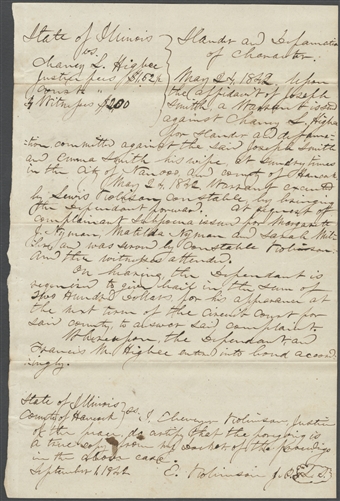 State of Illinois
vs.
Chancy L. Higbee
Justice fees $1,62½
Const "
4 Witnesses $2,00
Slander and Defamation
of Character.
May 24, 1842, Upon
the affidavit of Joseph
Smith, a Warrant issued
against Chancy L. Higbee
for Slander and defama-
tion committed against the said Joseph Smith
and Emma Smith his wife, at sundry times
in the City of Nauvoo, and county of Hancock
May 24, 1842, Warrant executed
by Lewis Robison Constable by bringing
the Defendant forward. At request of
Complainant Subpoena issued for Margaret
J. Nyman, Matilda Nyman and Sarah Mil-
ler and was served by Constable Robinson
And the witnesses attended.
On hearing, the Defendant is
required to give bail in the sum of
Two Hundred Dollars, for his appearance at
the next term of the Circuit Court for
said county, to answer said complaint.
Whereupon, the Defendant and
Francis M. Higbee entered into bond accord-
ingly.
State of Illinois
County of Hancock ss. I, Ebenezer Robinson, Justice
of the peace, do certify that the foregoing is
a true copy from my Docket of the proceedings
in the above case.
September 4, 1842
E. Robinson J. P.